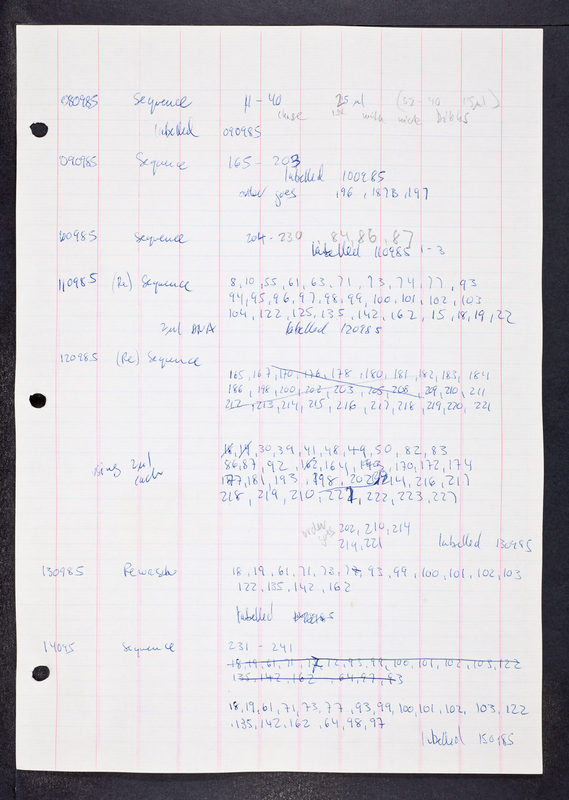 080985 Sequence 11 - 40 25 µl (32 - 40 15µl)
labelled 090985
090985 Sequence 165 - 203
labelled 100985
order goes 196, 187B, 197
100985 Sequence 204 - 230 84, 86, 87
labelled 110985 1 - 3
110985 (Re) Sequence 8, 10, 55, 61, 63, 71, 73, 74, 77, 93
94, 95, 96, 97, 98, 99, 100, 101, 102, 103
104, 122, 125, 135, 142, 162, 15, 18, 19, 22
2µl DNA labelled 120985
120985 (Re) Sequence
165, 167, 170, 176, 178, 180, 181, 182, 183, 184
186, 198, 200, 202, 203, 205, 208, 209, 210, 211
212, 213, 214, 215, 216, 217, 218, 219, 220, 221
18, 19, 30, 39, 41, 48, 49, 50, 82, 83
using 2µl each 86, 87, 92, 162, 164, 170, 172, 174
177, 181, 193, 198, 202, 214, 216, 217
218, 219, 210, 221, 222, 223, 227
order goes 202, 210, 214
219, 221 labelled 130985
130985 18, 19, 61, 71, 73, 77, 93, 99, 100, 101, 102, 103
122, 135, 142, 162
labelled
14095 Sequence 231 - 241
18, 19, 61, 71, 72, 93, 99, 100, 101, 102, 103, 122
135, 142, 162, 64, 97, 93
18, 19, 61, 71, 73, 77, 93, 99, 100, 101, 102, 103, 122
135, 142, 162, 64, 98, 97
labelled 150985